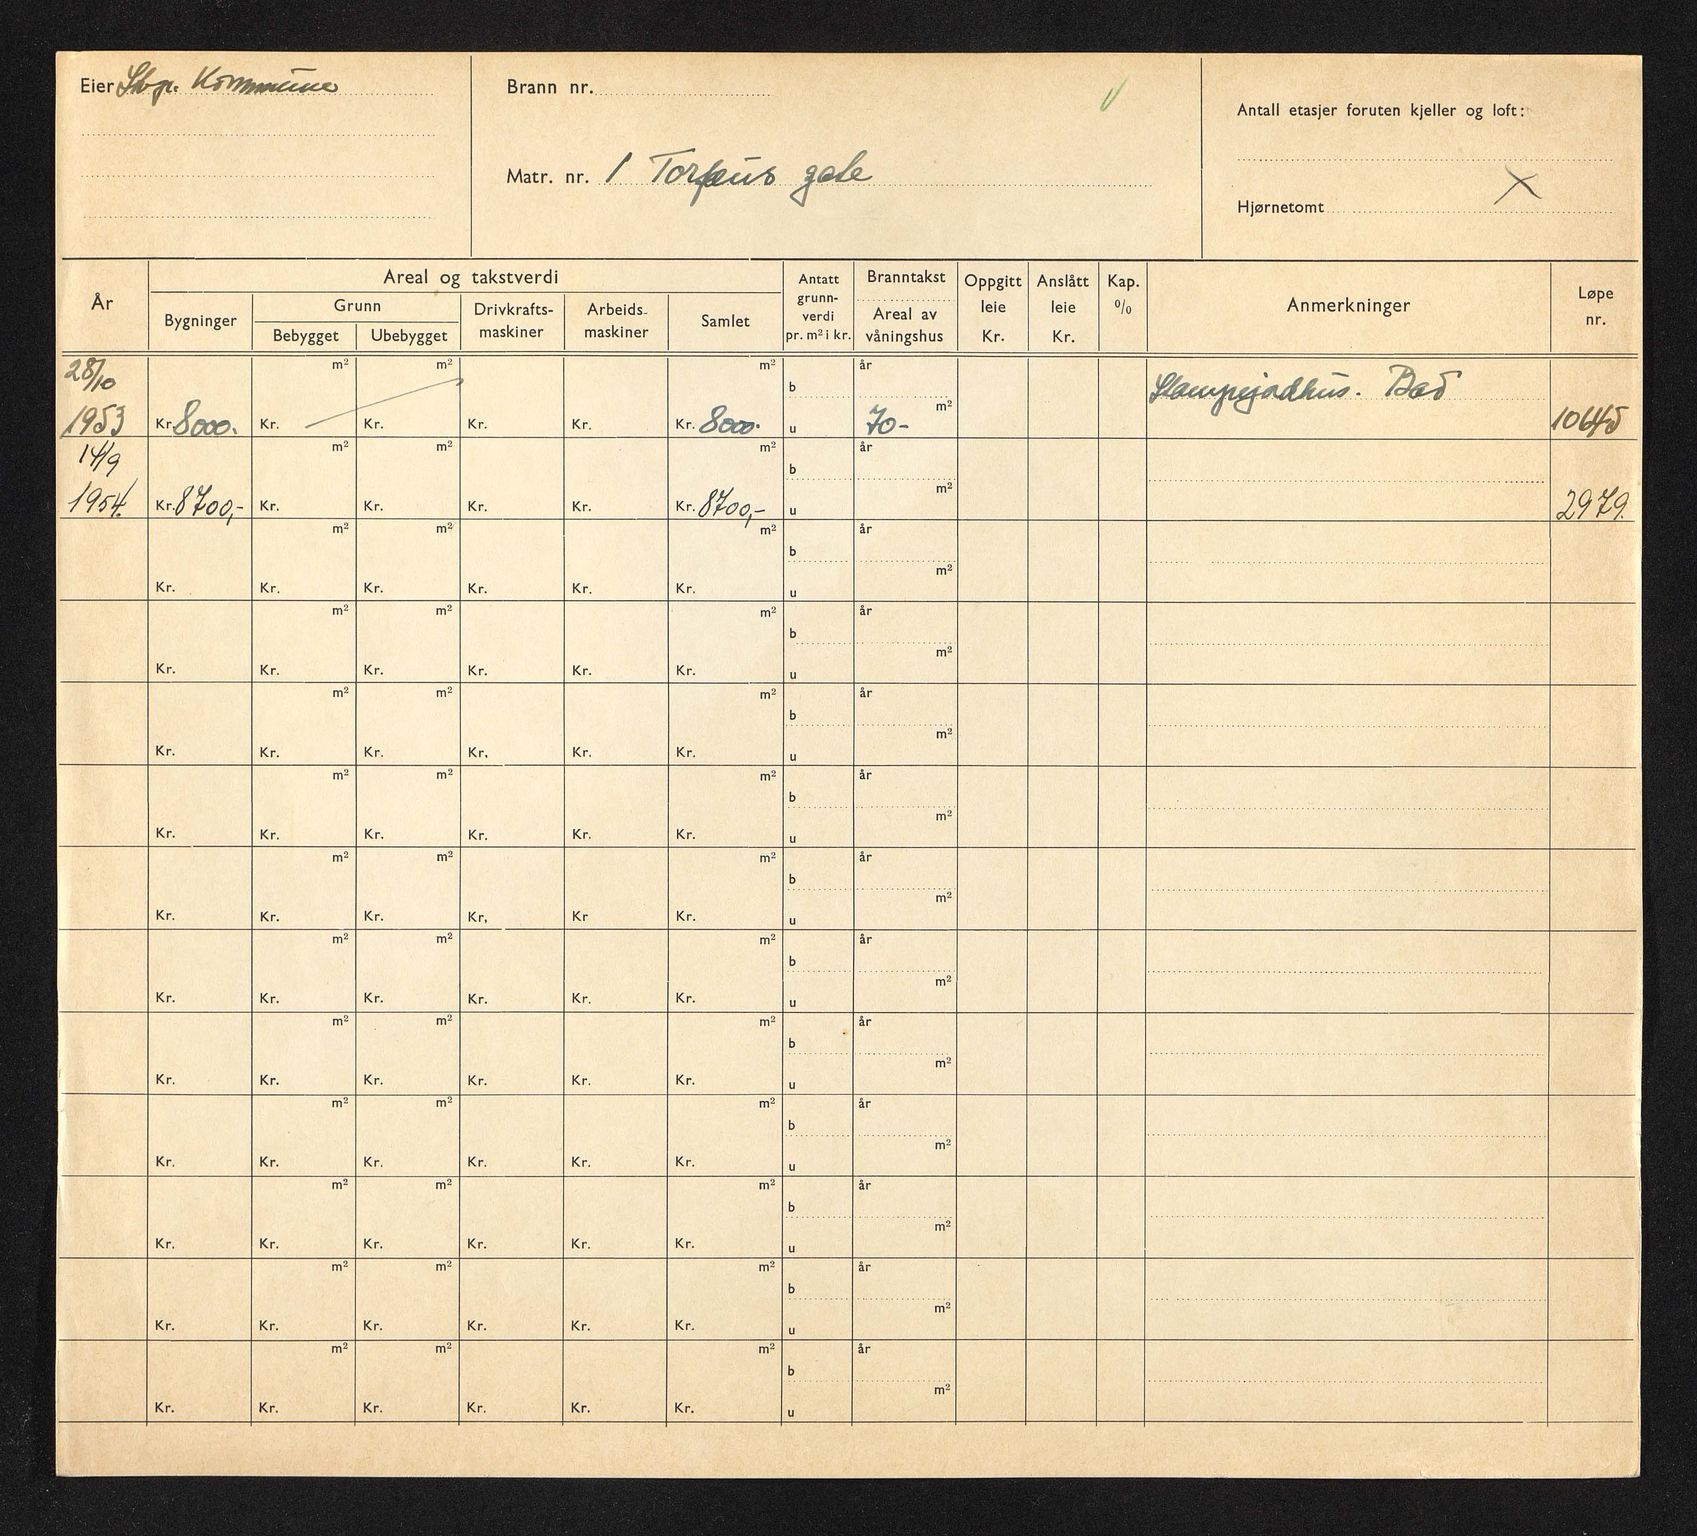 Eier Stvgr. Kommune
Brann nr.
Matr. nr. 1 Torfæus gate
V
Antall etasjer foruten kjeller og loft:
Hjørnetomt X
År
Areal og takstverdi
Bygninger
Grunn
Bebygget Ubebygget
Drivkrafts-
maskiner
Arbeids-
maskiner
Samlet
Antatt
grunn-
verdi
pr. m² i kr.
Branntakst
Areal av
våningshus
Oppgitt
leie
Kr.
Anslått
leie
Kr.
Kap.
%
Anmerkninger
Løpe
nr.
28/10 m² m² m² b år Stampejordhus. Bad
1953 Kr. 8000. Kr. Kr. Kr. Kr. Kr. 8000. u 70- m² 10645
14/9 m² m² m² b år
1954. Kr. 8700,- Kr. Kr. Kr. Kr. Kr. 8700,- u m² 2979.
m² m² m² b år
Kr. Kr. Kr. Kr. Kr. Kr. u m²
m² m² m² b år
Kr. Kr. Kr. Kr. Kr. Kr. u m²
m² m² m² b år
Kr. Kr. Kr. Kr. Kr. Kr. u m²
m² m² m² b år
Kr. Kr. Kr. Kr. Kr. Kr. u m²
m² m² m² b år
Kr. Kr. Kr. Kr. Kr Kr. u m²
m² m² m² b år
Kr. Kr. Kr. Kr. Kr. Kr. u m²
m² m² m² b år
Kr. Kr. Kr. Kr. Kr. Kr. u m²
m² m² m² b år
Kr. Kr. Kr. Kr. Kr. Kr. u m²
m² m² m² b år
Kr. Kr. Kr. Kr. Kr. Kr. u m²
m² m² m² b år
Kr. Kr. Kr. Kr. Kr. Kr. u m²
m² m² m² b år
Kr. Kr. Kr. Kr. Kr. Kr. u m²